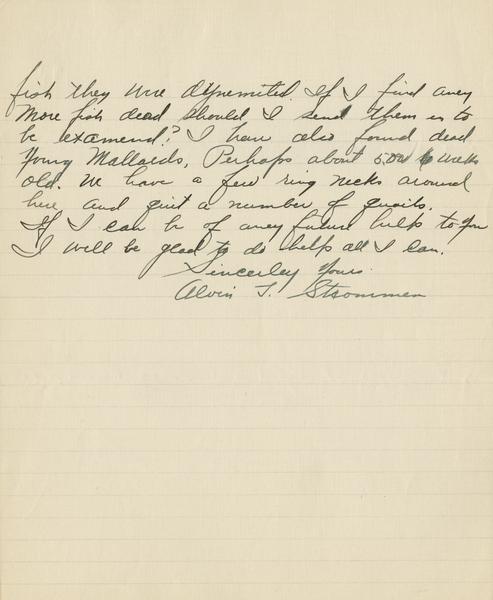 fish they wire dynemited. If I find aney
More fish dead should I send them in to
be examend? I have also found dead
Young Mallards, Perhaps about 5 or 6 weeks
old. We have a few ring necks around
here and quit a number of quails.
If I can be of aney future help to you
I will be glad to do help all I can.
Sincerley Yours.
Alvin T. Strommen